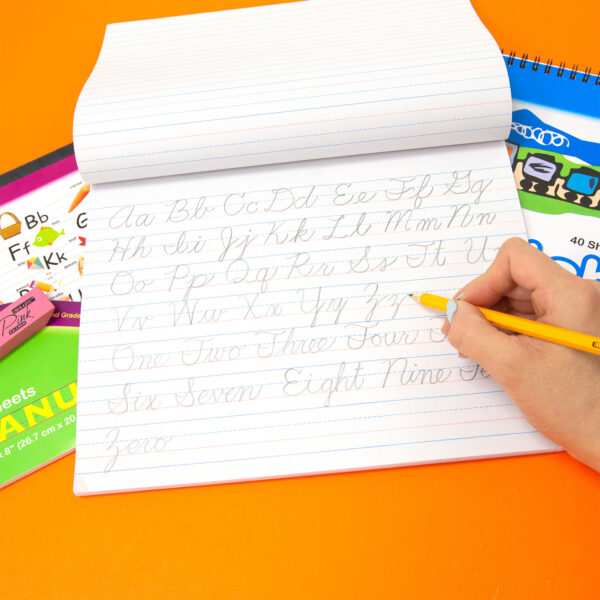 Aa Bb Cc Dd Ee Ff Gg
Hh Ii Jj Kk Ll Mm Nn
Oo Pp Qq Rr Ss Tt U
Vv Ww Xx Yy Zz
One Two Three Four
Six Seven Eight Nine Te
Zero
Bb
Ff
Kk
G
PINK
nd Grade
eets
ANU
8" (26.7 cm x 20.
40 Sh